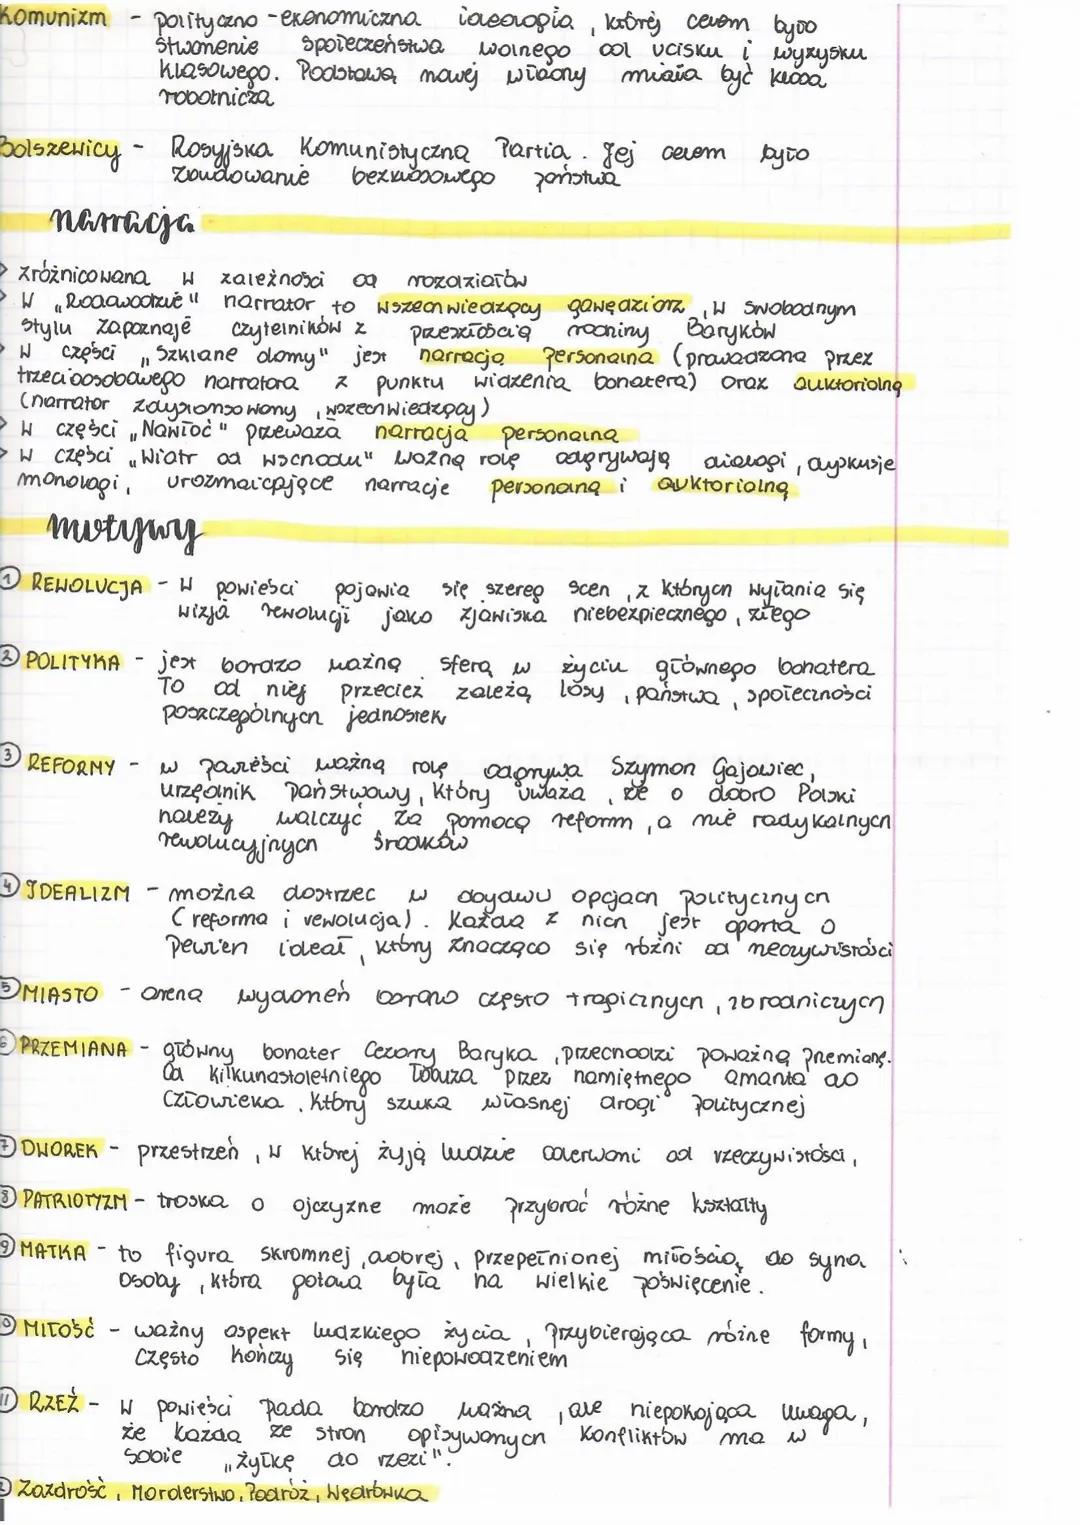 Komunizm - polityczno-ekonomiczna ideologia, której celem było
stworzenie społeczeństwa wolnego od ucisku i wyzysku
klasowego. Podstawą nowej władzy miała być klasa
robotnicza
Bolszewicy - Rosyjska Komunistyczna Partia. Jej celem było
zbudowanie bezklasowego państwa
narracja
> zróżnicowana w zależności od rozdziałów
> W „Rodowodzie" narrator to wszechwiedzący gawędziarz, w swobodnym
stylu zapoznaje czytelników z przeszłością rodziny Baryków
> W części „Szklane domy" jest narracja personalna (prowadzona przez
trzecioosobowego narratora z punktu widzenia bohatera) oraz auktorialna
(narrator zdystansowany, wszechwiedzący)
> W części „Nawłoć" przeważa narracja personalna
> W części „Wiatr od wschodu" ważną rolę odgrywają dialogi, dyskusje
monologi, urozmaicające narrację personalną i auktorialną
motywy
1 REWOLUCJA - W powieści pojawia się szereg scen, z których wyłania się
wizja rewolucji jako zjawiska niebezpiecznego, złego
2 POLITYKA - jest bardzo ważną sferą w życiu głównego bohatera
To od niej przecież zależą losy, państwa, społeczności
poszczególnych jednostek
3 REFORMY - w powieści ważną rolę odgrywa Szymon Gajowiec,
urzędnik państwowy, który uważa, że o dobro Polski
należy walczyć za pomocą reform, a nie radykalnych
rewolucyjnych środków
4 IDEALIZM - można dostrzec w obydwu opcjach politycznych
(reforma i rewolucja). Każda z nich jest oparta o
pewien ideał, który znacząco się różni od rzeczywistości
5 MIASTO - arena wydarzeń bardzo często tragicznych, zbrodniczych
6 PRZEMIANA - główny bohater Cezary Baryka, przechodzi poważną przemianę.
Od kilkunastoletniego łobuza przez namiętnego amanta do
człowieka, który szuka własnej drogi politycznej
7 DWOREK - przestrzeń, w której żyją ludzie oderwani od rzeczywistości,
8 PATRIOTYZM - troska o ojczyznę może przybrać różne kształty
9 MATKA - to figura skromnej, dobrej, przepełnionej miłością, do syna
Osoby, która gotowa była na wielkie poświęcenie.
10 MIŁOŚĆ - ważny aspekt ludzkiego życia, przybierająca różne formy,
Często kończy się niepowodzeniem
11 RZEŹ - W powieści pada bardzo ważna, ale niepokojąca uwaga,
że każda ze stron opisywanych konfliktów ma w
sobie „żyłkę do rzezi".
Zazdrość, Morderstwo, Podróż, Wędrówka